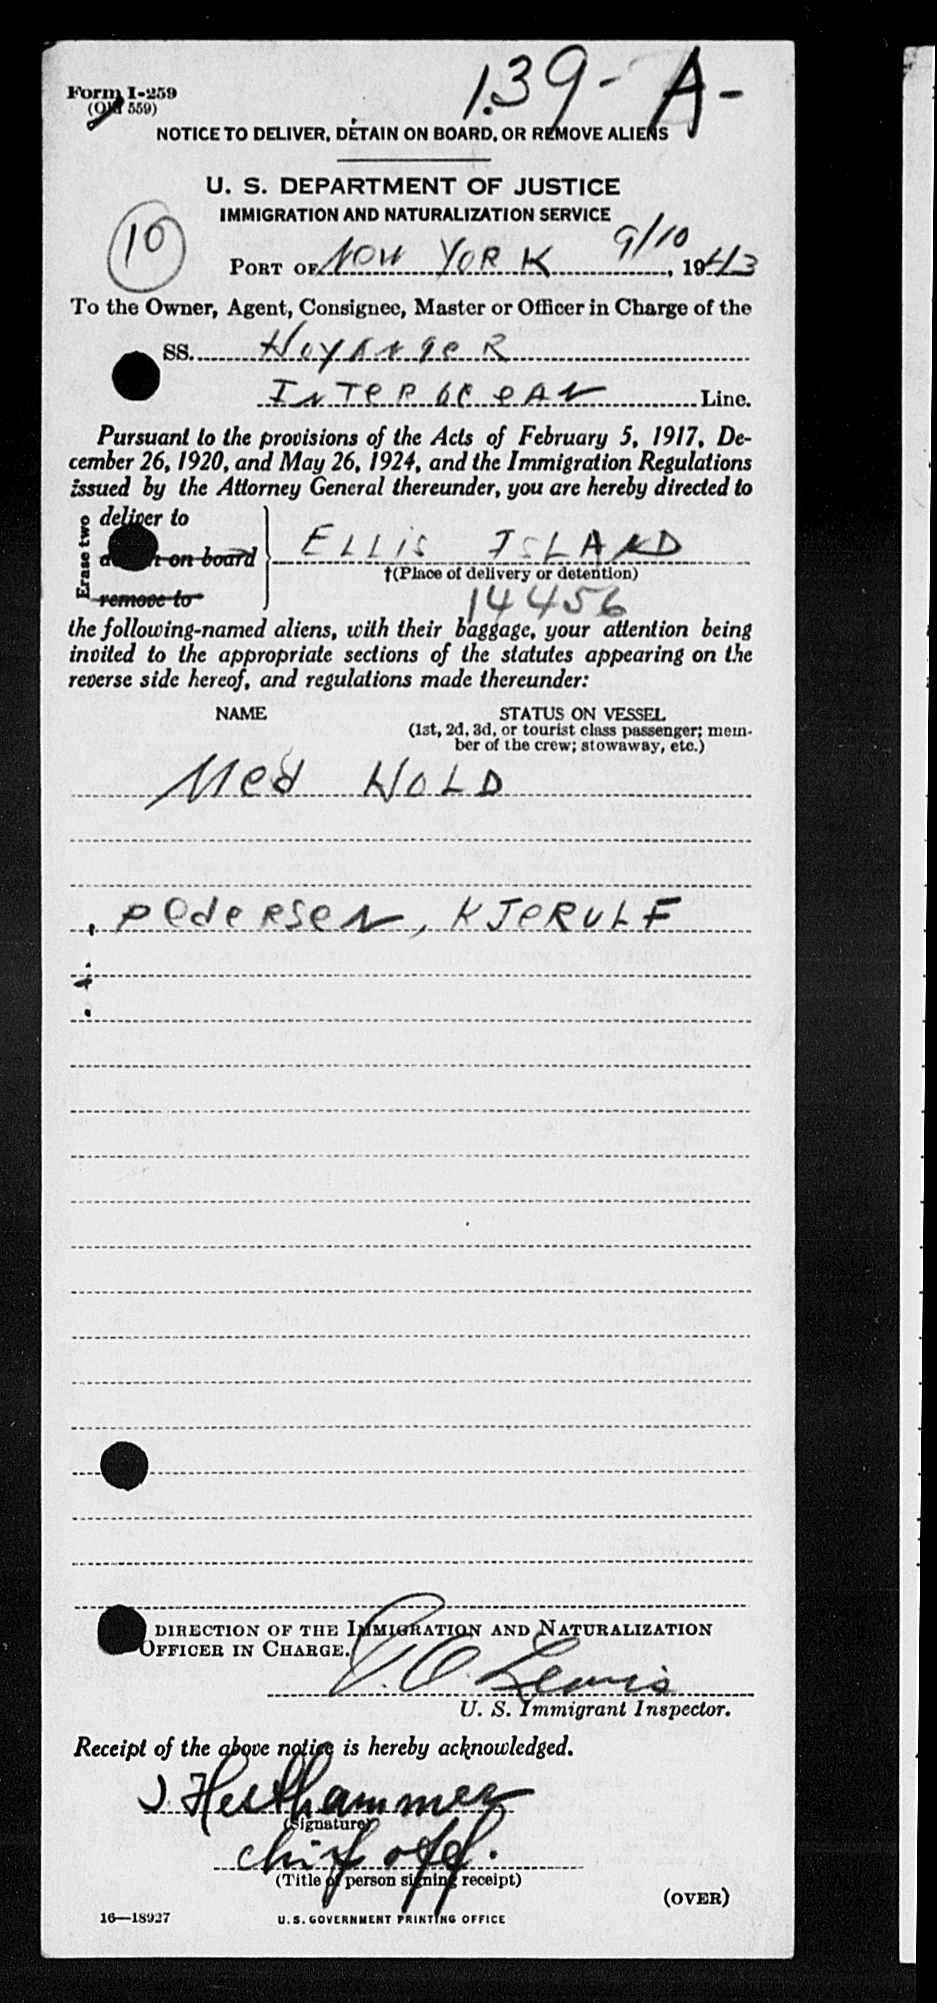 139- A-
Form I-259
(Old 559)
NOTICE TO DELIVER, DETAIN ON BOARD, OR REMOVE ALIENS
U. S. DEPARTMENT OF JUSTICE
IMMIGRATION AND NATURALIZATION SERVICE
10
PORT OF NEW YORK 9/10, 1943
To the Owner, Agent, Consignee, Master or Officer in Charge of the
SS. HOYANGER
INTEROCEAN Line.
Pursuant to the provisions of the Acts of February 5, 1917, De-
cember 26, 1920, and May 26, 1924, and the Immigration Regulations
issued by the Attorney General thereunder, you are hereby directed to
Erase two
deliver to
on board
remove to
ELLIS ISLAND
†(Place of delivery or detention)
14456
the following-named aliens, with their baggage, your attention being
invited to the appropriate sections of the statutes appearing on the
reverse side hereof, and regulations made thereunder:
NAME STATUS ON VESSEL
(1st, 2d, 3d, or tourist class passenger; mem-
ber of the crew; stowaway, etc.)
Med HOLD
PEDERSEN, KJERULF
DIRECTION OF THE IMMIGRATION AND NATURALIZATION
OFFICER IN CHARGE.
Lewis
U. S. Immigrant Inspector.
Receipt of the above notice is hereby acknowledged.
J. Hesthammer
(Signature)
chief off.
(Title of person signing receipt)
(OVER)
16—18927 U. S. GOVERNMENT PRINTING OFFICE